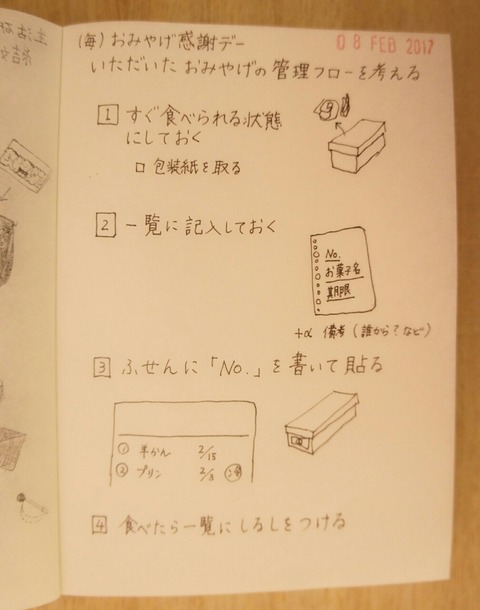 (毎) おみやげ感謝デー
08 FEB 2017
いただいた おみやげの 管理フローを考える
1 すぐ食べられる状態
にしておく
□ 包装紙を取る
2 一覧に記入しておく
No.
お菓子名
期限
+α 備考 (誰から?など)
3 ふせんに「No.」を書いて貼る
① 羊かん 2/15
② プリン 2/8 済
4 食べたら一覧にしるしをつける